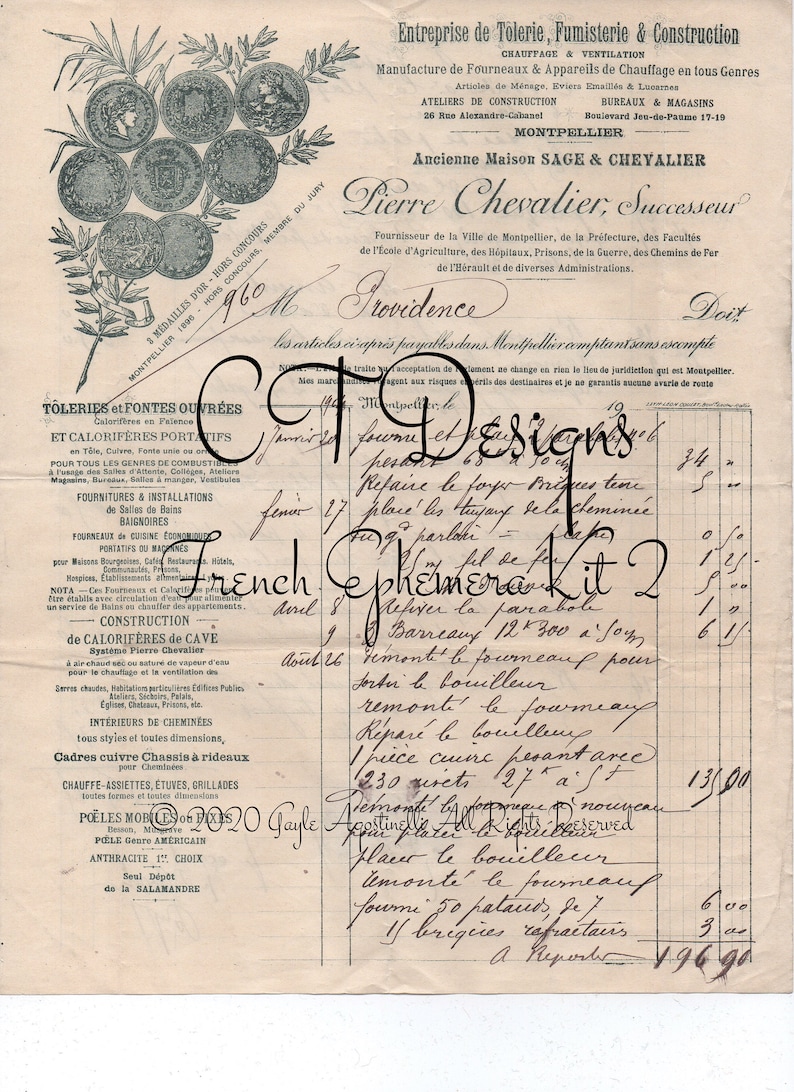 Entreprise de Tôlerie, Fumisterie & Construction
CHAUFFAGE & VENTILATION
Manufacture de Fourneaux & Appareils de Chauffage en tous Genres
Articles de Ménage, Eviers Emaillés & Lucarnes
ATELIERS DE CONSTRUCTION BUREAUX & MAGASINS
26 Rue Alexandre-Cabanel Boulevard Jeu-de-Paume 17-19
MONTPELLIER
Ancienne Maison SAGE & CHEVALIER
Pierre Chevalier, Successeur
Fournisseur de la Ville de Montpellier, de la Préfecture, des Facultés
de l'École d'Agriculture, des Hôpitaux, Prisons, de la Guerre, des Chemins de Fer
de l'Hérault et de diverses Administrations.
8 MÉDAILLES D'OR - HORS CONCOURS
MONTPELLIER 1896 - HORS CONCOURS, MEMBRE DU JURY
960
M Providence Doit
les articles ci-après payables dans Montpellier comptant sans escompte
NOTA. traite ou l'acceptation de règlement ne change en rien le lieu de juridiction qui est Montpellier.
Mes marchandises voyagent aux risques et périls des destinaires et je ne garantis aucune avarie de route
CTDesigns
French Ephemera Kit 2
© 2020 Gayle Agostinelli All Rights Reserved
TÔLERIES et FONTES OUVRÉES
Calorifères en Faïence
ET CALORIFÈRES PORTATIFS
en Tôle, Cuivre, Fonte unie ou
POUR TOUS LES GENRES DE COMBUSTIBLES
à l'usage des Salles d'Attente, Collèges, Ateliers
Magasins, Bureaux, Salles à manger, Vestibules
FOURNITURES & INSTALLATIONS
de Salles de Bains
BAIGNOIRES
FOURNEAUX de CUISINE ÉCONOMIQUES
PORTATIFS OU MAÇONNÉS
pour Maisons Bourgeoises, Cafés, Restaurants, Hôtels,
Communautés, Prisons,
Hospices, Établissements
NOTA — Ces Fourneaux et Calorifères peuvent
être établis avec circulation d'eau pour alimenter
un service de Bains ou chauffer des appartements.
CONSTRUCTION
de CALORIFÈRES de CAVE
Système Pierre Chevalier
à air chaud sec ou saturé de vapeur d'eau
pour le chauffage et la ventilation des
Serres chaudes, Habitations particulières Édifices Publics
Ateliers, Séchoirs, Palais,
Églises, Chateaux, Prisons, etc.
INTÉRIEURS DE CHEMINÉES
tous styles et toutes dimensions,
Cadres cuivre Chassis à rideaux
pour Cheminées
CHAUFFE-ASSIETTES, ÉTUVES, GRILLADES
toutes formes et toutes dimensions
POËLES MOBILES ou FIXES
Besson, Musgrave
POËLE Genre AMÉRICAIN
ANTHRACITE 1er CHOIX
Seul Dépôt
de la SALAMANDRE
Montpellier, le 19
Janvier 20 fourni et placé parabole no 6
pesant 68 à 50 34 "
Refaire le foyer Briques terre 5 "
février 27 placé les tuyaux de la cheminée
du gd parloir = 0 50
fil de fer 1 25
5 00
Avril 8 la parabole 1 "
9 3 Barreaux 12k300 à 50 6 15
Août 26 Démonté le fourneau pour
sortir le bouilleur
remonté le fourneau
Réparé le bouilleur
1 pièce cuivre pesant avec
230 rivets 27k à 5f 135 00
Démonté le fourneau à nouveau
pour placer le bouilleur
placer le bouilleur
remonté le fourneau
fourni 50 de 7 6 00
15 briques réfractairs 3 00
A Reporter 196 90